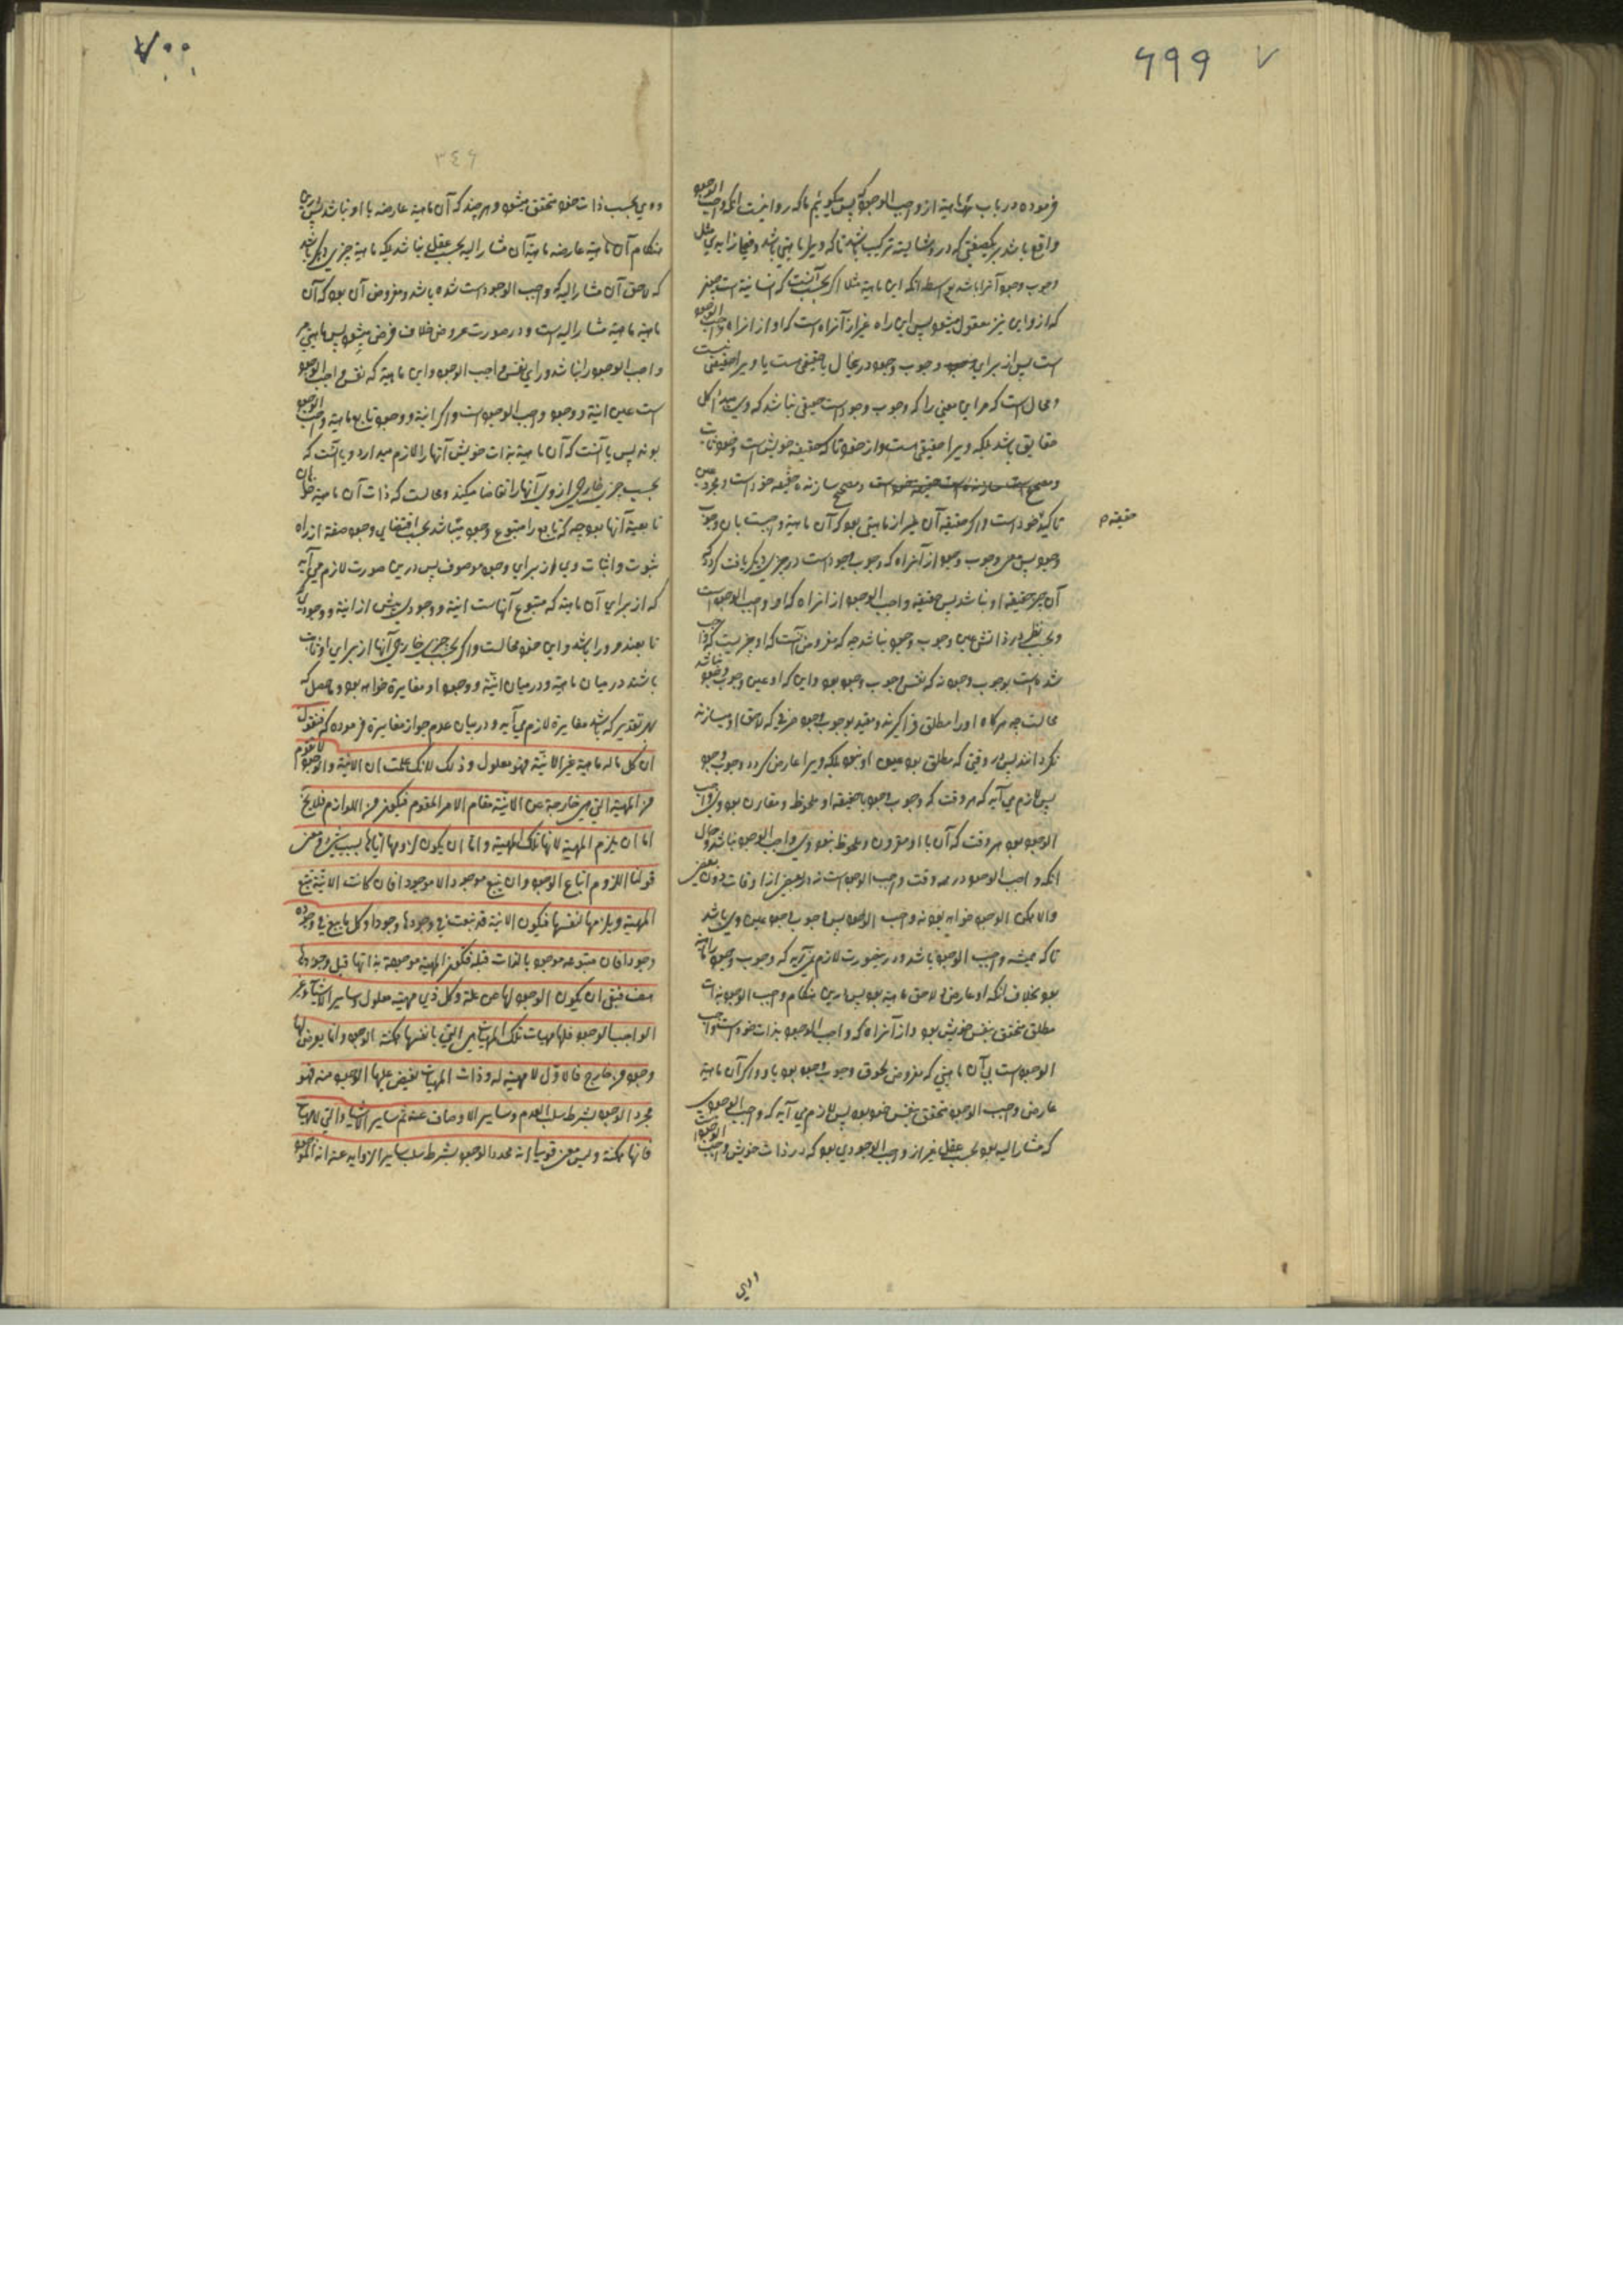 ۶۹۹
فرموده در باب نفی ماهیة از واجب الوجود که پس میکوئیم تا که روا نیست انکه واجب الوجود
واقع باشد بر یکصفتی که در و شایبه ترکیب باشد تا که ویرا ماهیتی باشد
وجوب وجود آنرا باشد بواسطه انکه این ماهیة مثلا اکر بحسب آنست که انسانیة است
که از و این نیز معقول میشود پس این راه غیر از آنراه است که او از انراه واجب الوجود
است پس از برای وجوب وجود درینحال یا حقیقتی است یا ویرا حقیقتی نیست
و محال است که مر این معنی را که وجوب وجود است حقیقتی نباشد که وی مبدا کل
حقایق باشد بلکه ویرا حقیقتی است
و مصحح سازنده حقیقه خود است
حقیقه م
تاکید خود است و اکر حقیقه آن غیر از ماهیتی بود که آن ماهیة واجبست بان وجوب
وجود پس معنی وجوب وجود از آنراه که وجوب وجود است در چیزی دیکر یافت کردد که
آن چیز حقیقه او نباشد پس حقیقه واجب الوجود از انراه که او واجب الوجود است
و بحسب نظر در ذاتش عین وجوب وجود نباشد چه که مفروض آنست که او چیزیست که واجب
شده است بوجوب وجود نه که نفس وجوب وجود بود و این که او عین وجوب وجود نباشد
محالست چه هرکاه او را مطلق فراکیرند و مقید بوجوب وجود صرفی که لاحق او میسازند
نکردانند پس هر وقتی که مطلق بود عین او نبود بلکه ویرا عارض کردد وجوب وجود
پس لازم می آید که هر وقت که وجوب وجود با حقیقه او ملحوظ و مقارن بود وی واجب
الوجود بود هر وقت که آن با او مقرون و ملحوظ نبود وی واجب الوجود نباشد و حال
انکه واجب الوجود در همه وقت واجب الوجود است نه در بعضی از اوقات دون بعضی
والا ممکن الوجود خواهد بود نه واجب الوجود پس وجوب وجود عین وی باشد
تا که همیشه واجب الوجود باشد و درینصورت لازم نمی آید که وجوب وجود را ماهیة
بود بخلاف انکه او عارض و لاحق ماهیة بود پس درین هنکام واجب الوجود بذات
مطلق متحقق بنفس خویش بود و از آنراه که واجب الوجود بذات خود است واجب
الوجود است بی آن ماهیتی که مفروض لحوق وجوب وجود بود باو و اکر آن ماهیة
عارض واجب الوجود متحقق بنفس خود بود پس لازم می آید که واجب الوجودی
که مشار الیه بود بحسب عقل غیر از واجب الوجودی بود که در ذات خویش واجب الوجود است
۷۰۰
۳۴۶
و وی بحسب ذات خود متحقق میشود هر چند که آن ماهیة عارضه با او نباشد پس درین
هنکام آن ماهیة عارضه ماهیة آن مشار الیه بحسب عقل نباشد بلکه ماهیة چیزی دیکر باشد
که لاحق آن مشار الیه که واجب الوجود است شده باشد و مفروض آن بود که آن
ماهیة ماهیة مشار الیه است و درصورت عروض خلاف فرض میشود پس ماهیتی مر
واجب الوجود را نباشد ورای نفس واجب الوجود و این ماهیة که نفس واجب الوجود
است عین انیة و وجود واجب الوجود است و اکر انیة و وجود تابع ماهیة واجب الوجود
بودند پس یا آنست که آن ماهیة بذات خویش آنها را لازم میدارد و یا آنست که
بحسب چیزی خارجی از وی آنها را تقاضا میکند و محالست که ذات آن ماهیة
تابعیة آنها بود چه که تابع را متبوع وجود میباشد بحسب اقتضای وجود صفة از راه
ثبوت و اثبات وی از برای وجود موصوف پس درین صورت لازم می آید
که از برای آن ماهیة که متبوع آنهاست انیة و وجودی پیش از انیة و وجودی که
تابعند مر ورا باشد و این خود محالست و اکر بحسب چیزی خارجی آنها از برای او ثابت
باشند درمیان ماهیة و درمیان انیة و وجود او مغایرة خواهد بود و حاصل که
بهر تقدیر که باشد مغایرة لازم می آید و در بیان عدم جواز مغایرة فرموده که فنقول
ان کل ما له ماهیة غیر الانیة فهو معلول و ذلک لانک علمت ان الانیة و الوجود لا تقوم
من المهیة التی هی خارجة عن الانیة مقام الامر المقوم فیکون من اللوازم فلا یخ
اما ان یلزم المهیة لانها تلک المهیة و اما ان یکون لزومها ایاها بسبب شئ و معنی
قولنا اللزوم اتباع الوجود و لن یتبع موجود الا موجودا فان کانت الانیة تتبع
المهیة و یلزمها لنفسها فیکون الانیة قد تبعت فی وجودها وجودا و کل ما یتبع فی وجوده
وجودا فان متبوعه موجود بالذات قبله فتکون المهیة موجودة بذاتها قبل وجودها
هف فبقی ان یکون الوجود لها عن علة و کل ذی مهیة معلول و سایر الاشیاء غیر
الواجب الوجود فلها مهیات تلک المهیات هی التی بانفسها ممکنة الوجود و انما یعرض لها
وجود من خارج فالاول لا مهیة له و ذات المهیات یفیض علیها الوجود منه فهو
مجرد الوجود بشرط سلب العدم و سایر الاوصاف عنه ثم سایر الاشیاء التی لها مهیات
فانها ممکنة و لیس معنی قولنا انه مجرد الوجود بشرط سلب سایر الزواید عنه انه الموجود